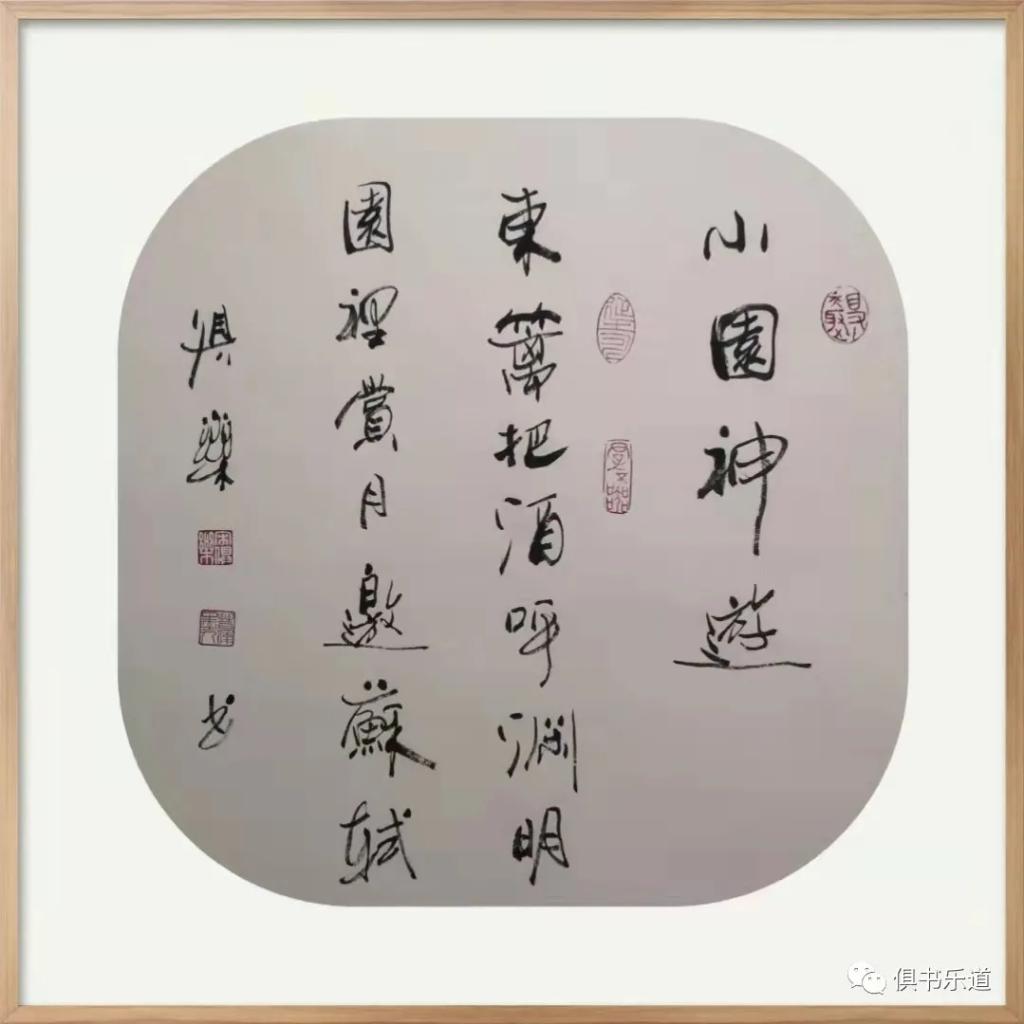 小園神遊
東籬把酒呼淵明
園裡賞月邀蘇軾
俱樂
书
俱书乐道